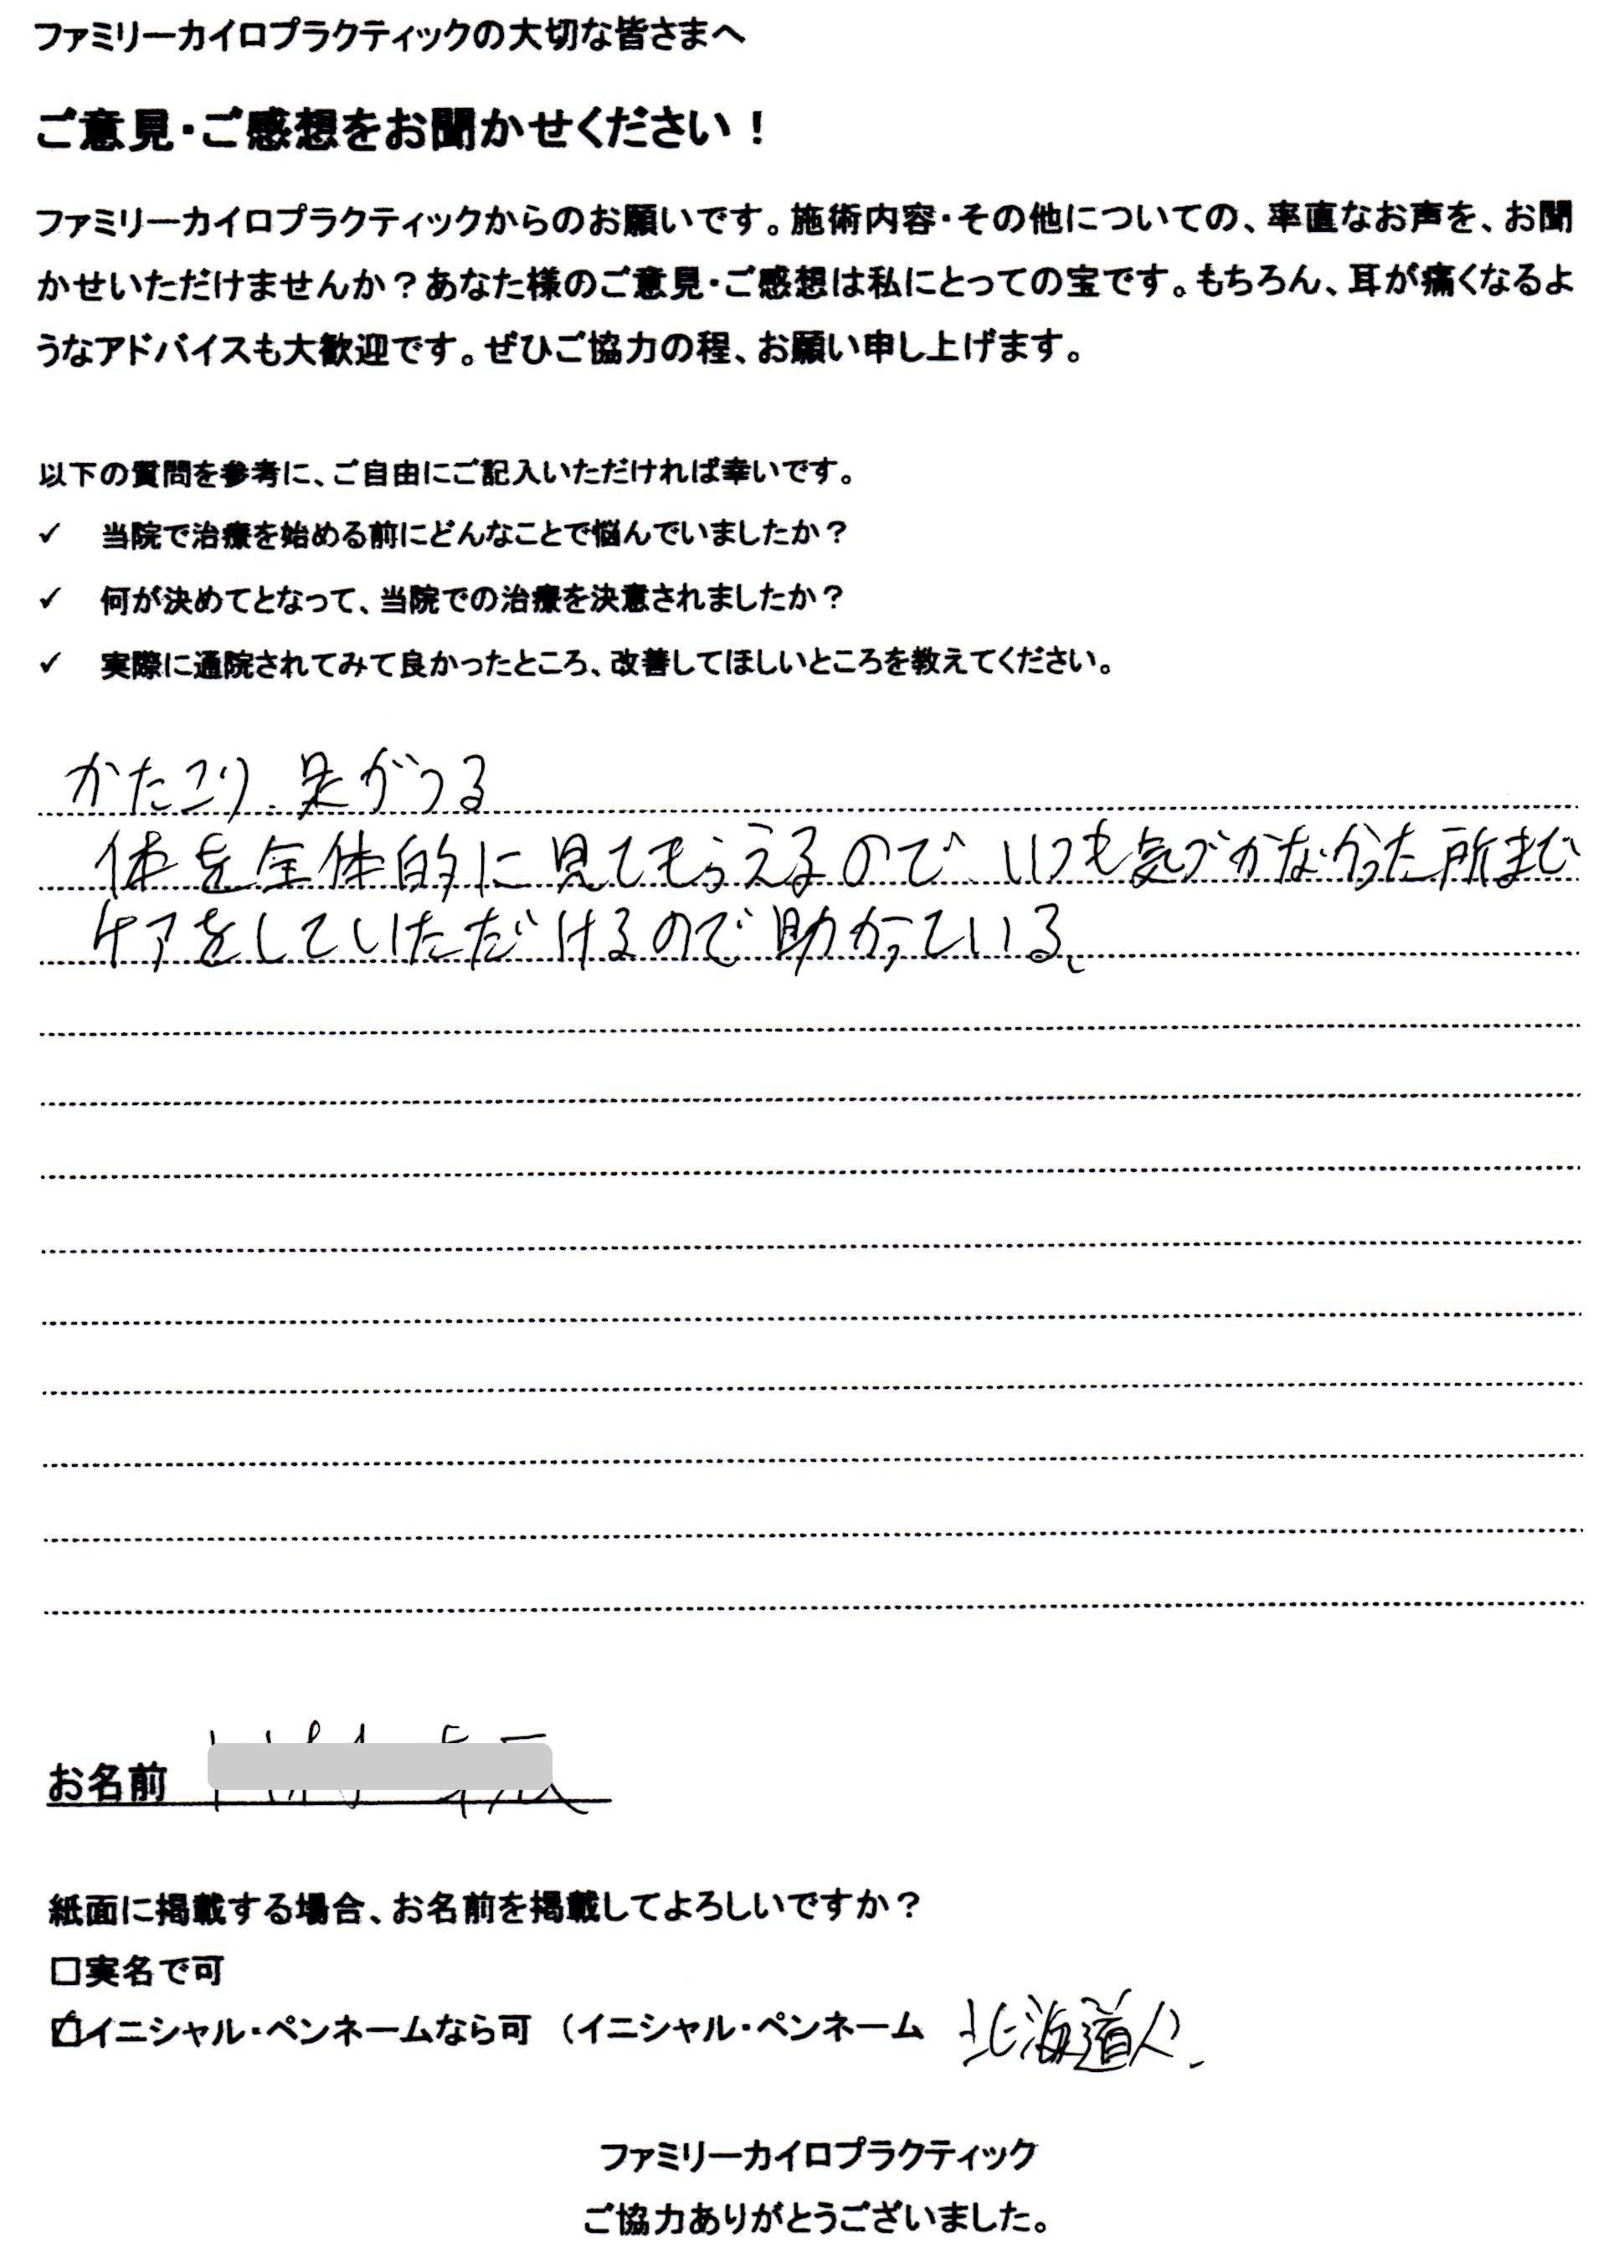 ファミリーカイロプラクティックの大切な皆さまへ
ご意見・ご感想をお聞かせください！
ファミリーカイロプラクティックからのお願いです。施術内容・その他についての、率直なお声を、お聞
かせいただけませんか？あなた様のご意見・ご感想は私にとっての宝です。もちろん、耳が痛くなるよ
うなアドバイスも大歓迎です。ぜひご協力の程、お願い申し上げます。
以下の質問を参考に、ご自由にご記入いただければ幸いです。
✓ 当院で治療を始める前にどんなことで悩んでいましたか？
✓ 何が決めてとなって、当院での治療を決意されましたか？
✓ 実際に通院されてみて良かったところ、改善してほしいところを教えてください。
かたこり、足がつる
体を全体的に見てもらえるので、いつも気づかなかった所まで
ケアをしていただけるので助かっている。
お名前
紙面に掲載する場合、お名前を掲載してよろしいですか？
□実名で可
☑イニシャル・ペンネームなら可 （イニシャル・ペンネーム 北海道人
ファミリーカイロプラクティック
ご協力ありがとうございました。